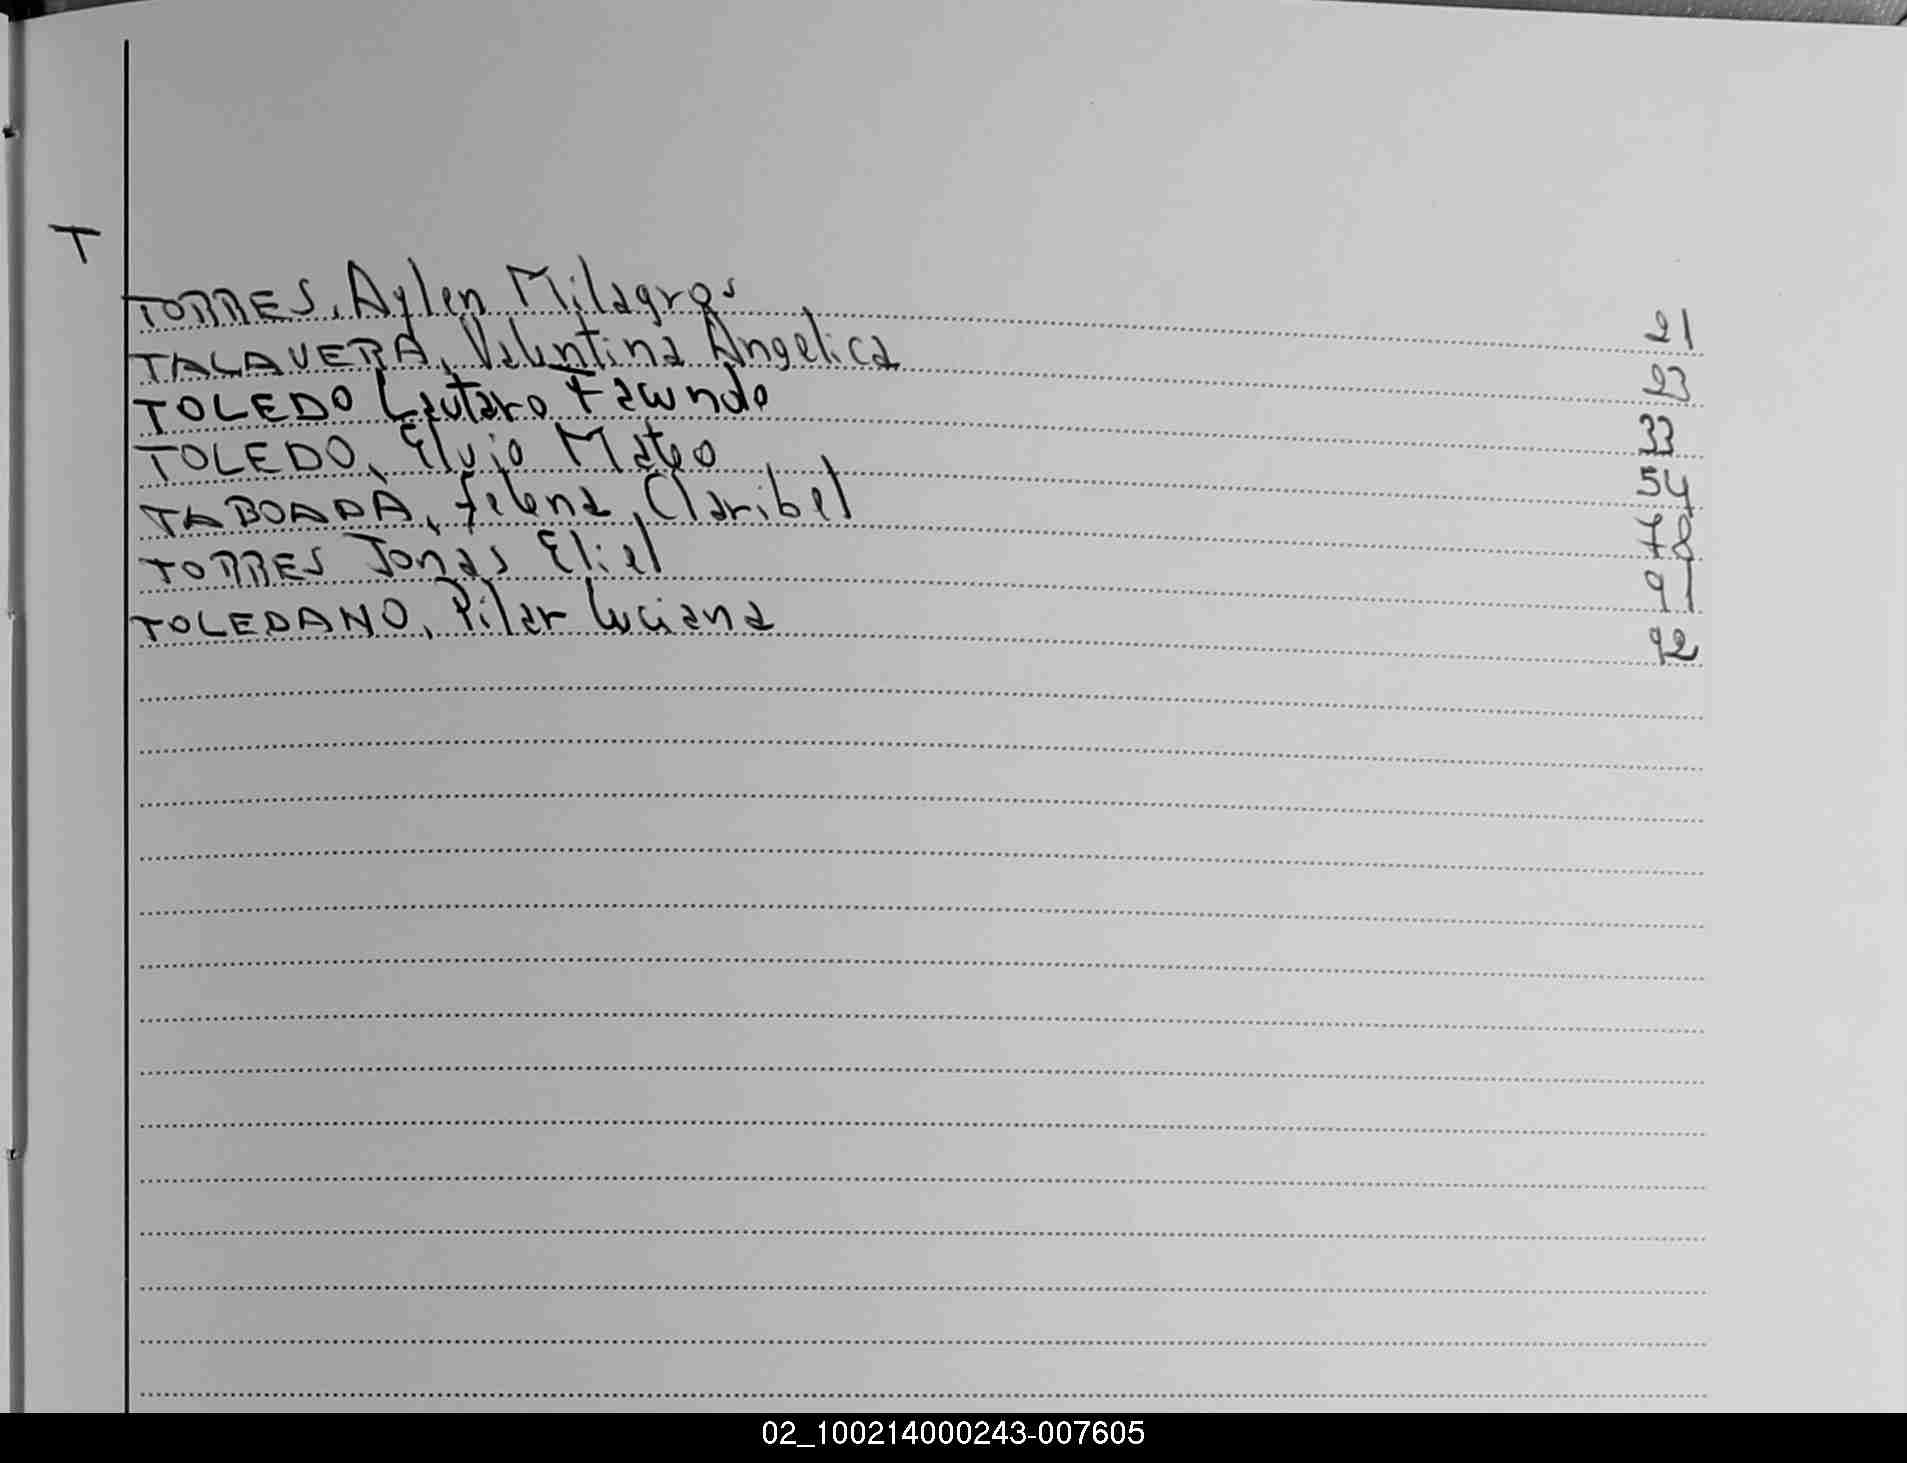 T
TORRES, Aylen Milagros 21
TALAVERA, Valentina Angelica 23
TOLEDO Lautaro Facundo 33
TOLEDO, Elvio Mateo 54
TABOADA, Jelena Claribel 78
TORRES Jonas Eliel 91
TOLEDANO, Pilar Luciana 92
02_100214000243-007605